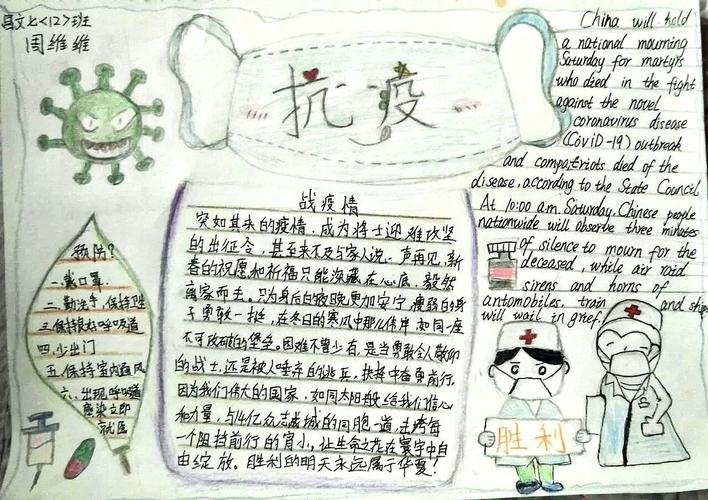 昌文七<12>班
周维维
抗疫
China will hold
a national mourning
Saturday for martyrs
who died in the fight
against the novel
coronavirus disease
(CoviD-19) outbreak
and compatriots died of the
disease, according to the State Council
At 10:00 a.m. Saturday, Chinese people
nationwide will observe three minutes
of silence to mourn for the
deceased, while air raid
sirens and horns of
antomobiles, train and ships
will wait in grief.
战疫情
突如其来的疫情,成为将士迎难攻坚
的出征令,甚至来不及与家人说一声再见,新
春的祝愿和祈福只能深藏在心底,毅然
离家而去。只为身后的夜晚更加安宁,瘦弱的身
子勇敢一挺,在冬日的寒风中那么伟岸,如同一座
不可攻破的堡垒。困难不曾少有,是当勇敢令人敬仰
的战士,还是被人唾弃的逃兵,抉择中奋勇前行,
因为我们伟大的国家,如同太阳般给我们信心
和力量,与14亿众志成城的同胞一道,击溃每
一个阻挡前行的宵小,让生命之花在寰宇中自
由绽放。胜利的明天永远属于华夏!
预防?
一.戴口罩
二.勤洗手,保持卫生
三.保持良好呼吸道
四.少出门
五.保持室内通风
六.出现呼吸道
感染立即
就医
胜利